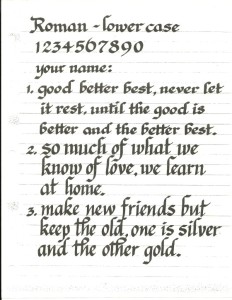 Roman - lower case
1234567890
your name:
1. good better best, never let
it rest, until the good is
better and the better best.
2. so much of what we
know of love, we learn
at home.
3. make new friends but
keep the old, one is silver
and the other gold.